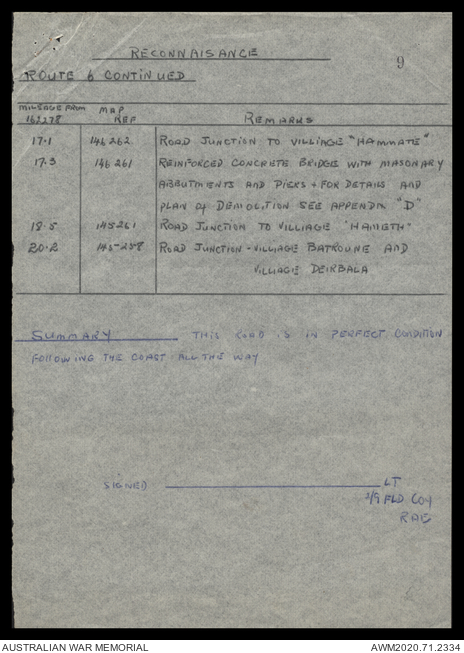 RECONNAISANCE
9
ROUTE 6 CONTINUED
MILEAGE FROM 162278 MAP REF REMARKS
17.1 146262 ROAD JUNCTION TO VILLIAGE "HAMMATE"
17.3 146261 REINFORCED CONCRETE BRIDGE WITH MASONARY
ABBUTMENTS AND PIERS + FOR DETAILS AND
PLAN of DEMOLITION SEE APPENDIX "D"
18.5 145261 ROAD JUNCTION TO VILLIAGE 'HAMETH'
20.2 145-258 ROAD JUNCTION - VILLIAGE BATROUNE AND
VILLIAGE DEIRBALA
SUMMARY THIS ROAD IS IN PERFECT CONDITION
FOLLOWING THE COAST ALL THE WAY
SIGNED LT
2/9 FLD COY
RAE
AUSTRALIAN WAR MEMORIAL AWM2020.71.2334